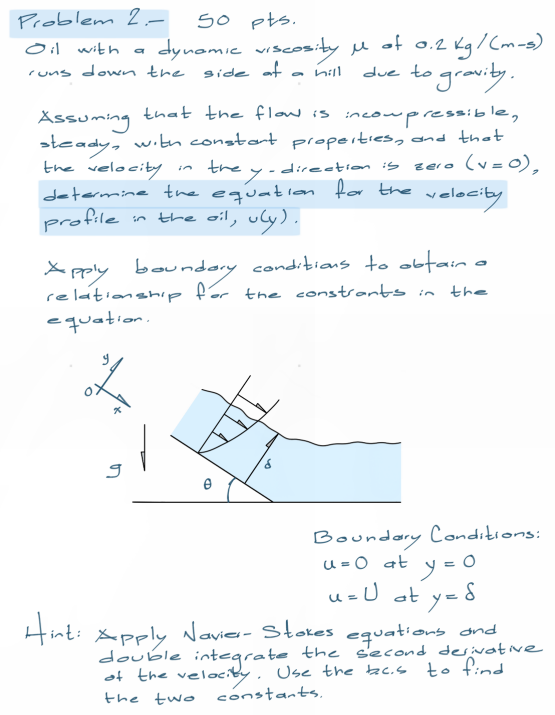 Problem 2.- 50 pts.
Oil with a dynamic viscosity μ of 0.2 kg/(m-s)
runs down the side of a hill due to gravity.
Assuming that the flow is incompressible,
steady, with constant properties, and that
the velocity in the y-direction is zero (v=0),
determine the equation for the velocity
profile in the oil, u(y).
Apply boundary conditions to obtain a
relationship for the constrants in the
equation.
y
0
x
g
θ
δ
Boundary Conditions:
u=0 at y=0
u=U at y=δ
Hint: Apply Navier-Stokes equations and
double integrate the second derivative
of the velocity. Use the bc.s to find
the two constants.